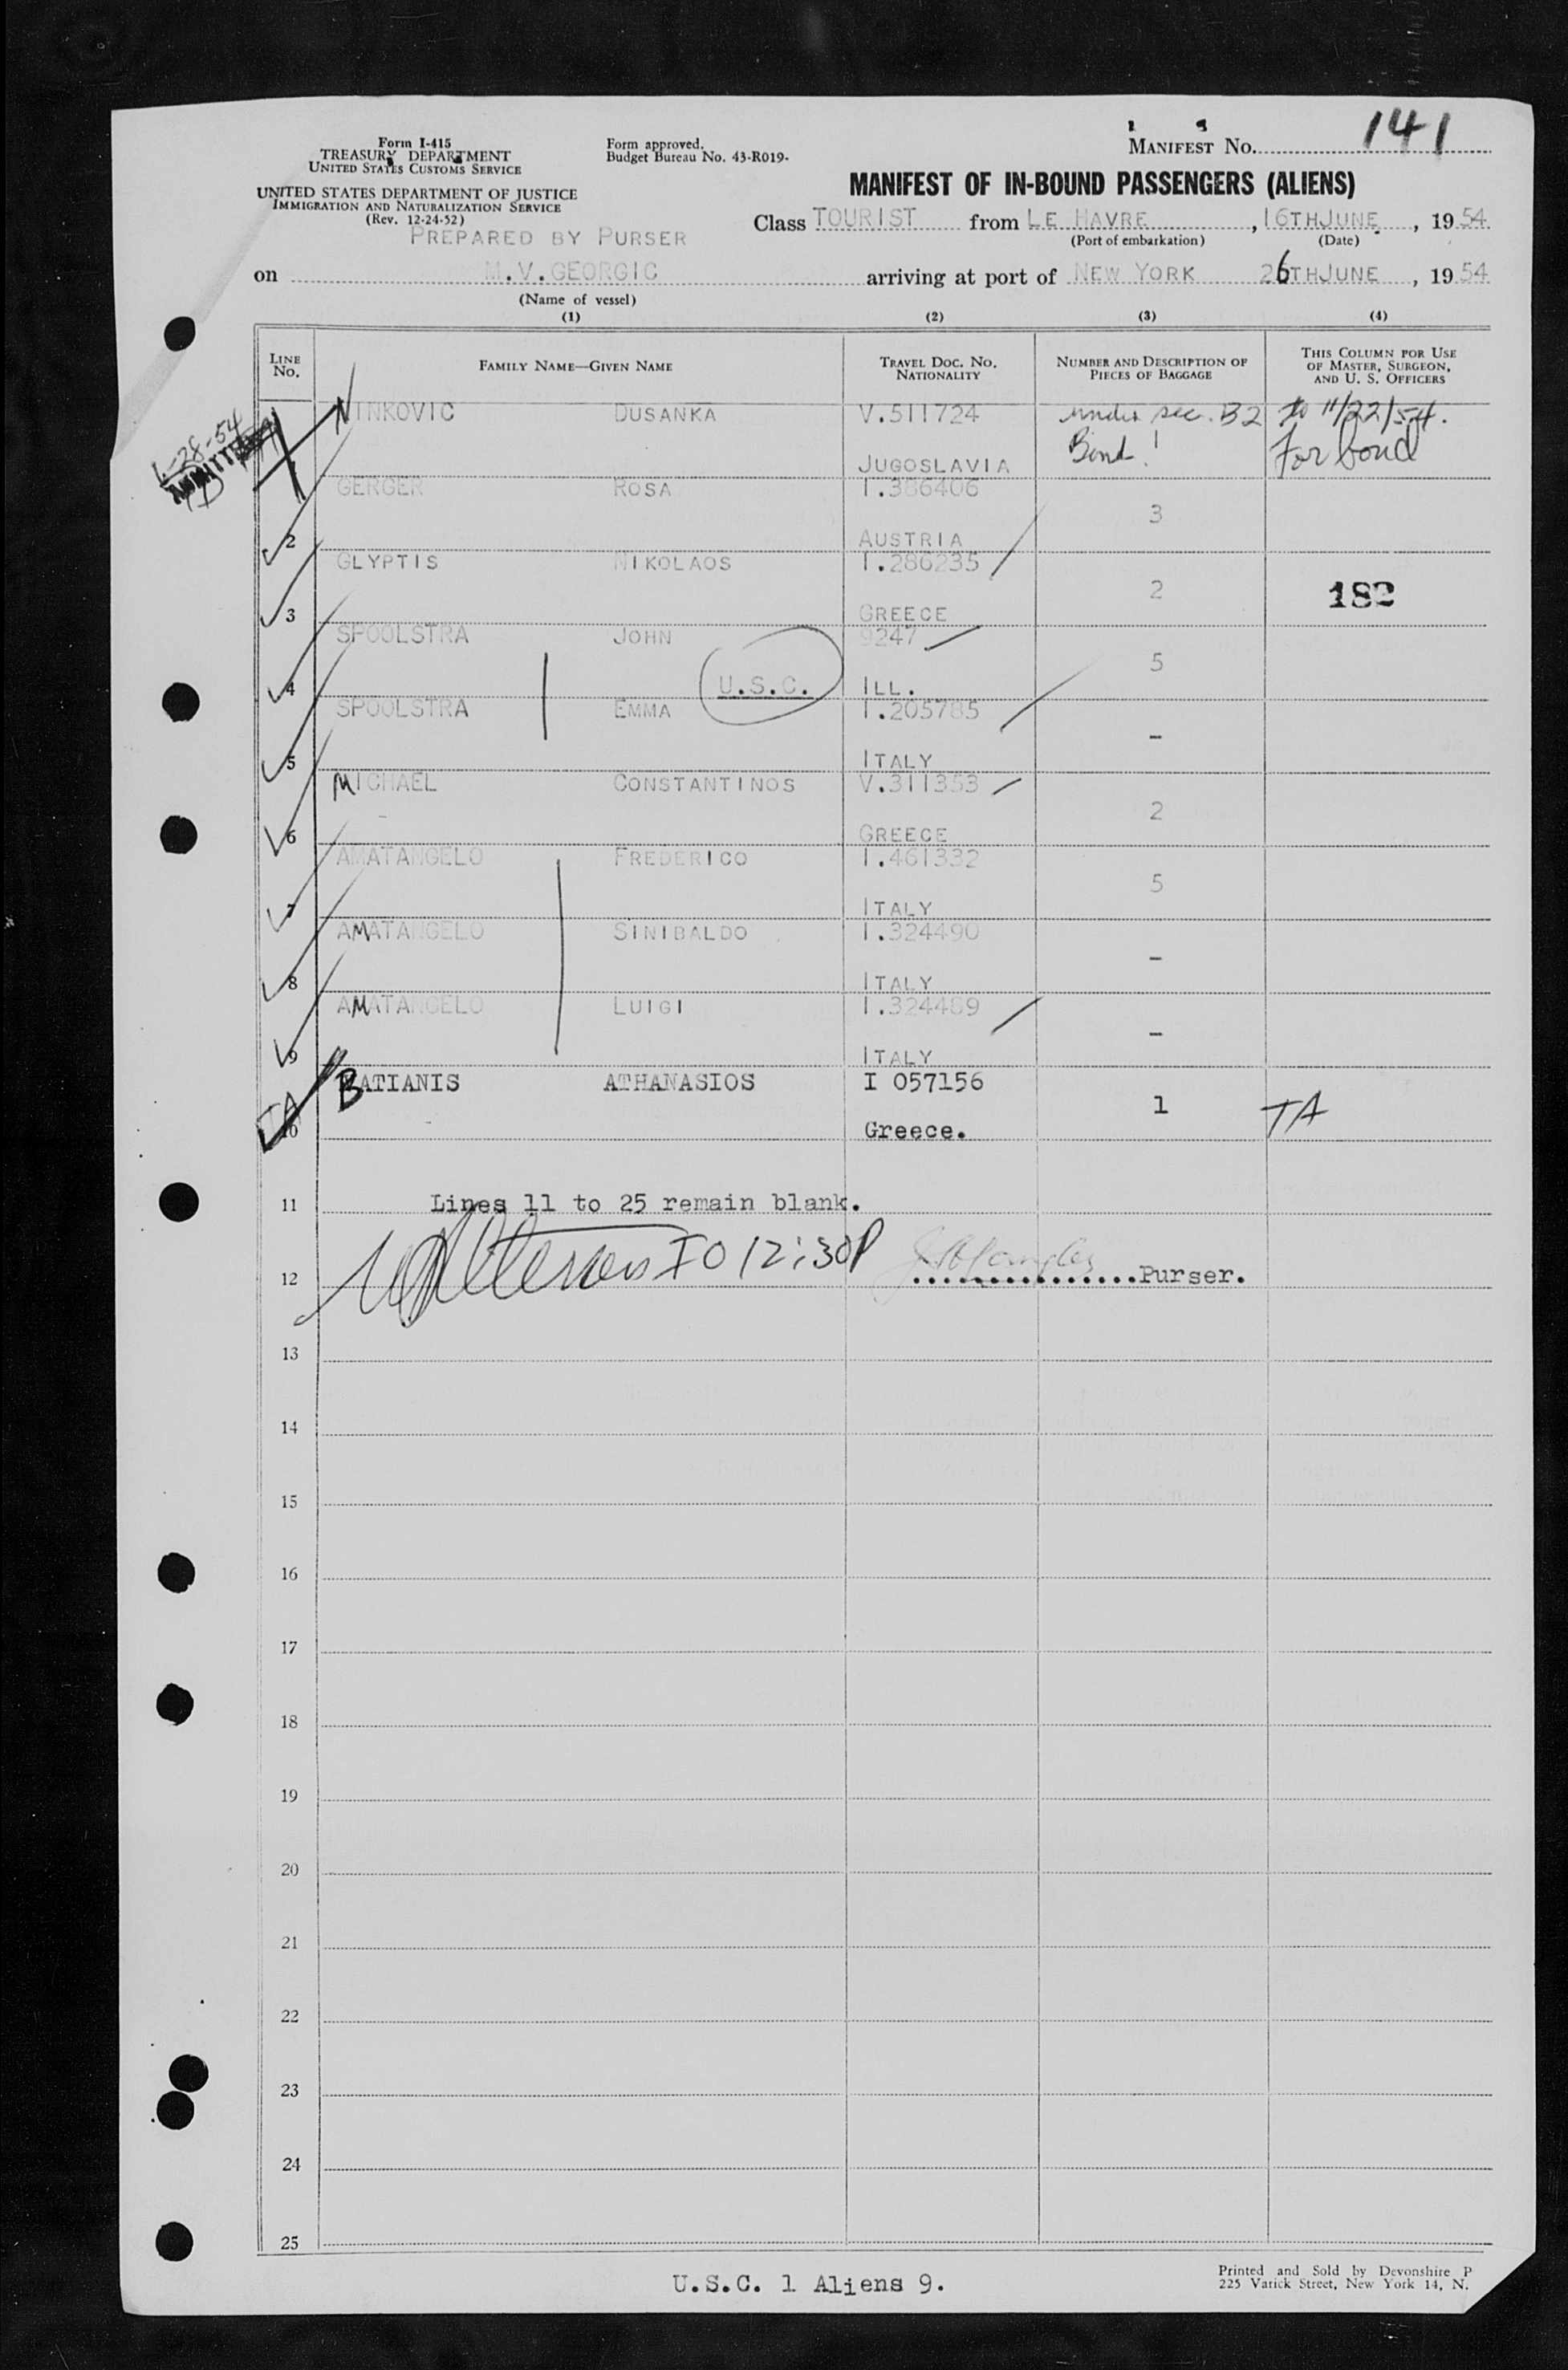 Form I-415
TREASURY DEPARTMENT
UNITED STATES CUSTOMS SERVICE
UNITED STATES DEPARTMENT OF JUSTICE
IMMIGRATION AND NATURALIZATION SERVICE
(Rev. 12-24-52)
PREPARED BY PURSER
Form approved.
Budget Bureau No. 43-R019-
MANIFEST NO. 141
MANIFEST OF IN-BOUND PASSENGERS (ALIENS)
Class TOURIST from LE HAVRE, 16TH JUNE, 1954
(Port of embarkation) (Date)
on M.V.GEORGIC arriving at port of NEW YORK 26TH JUNE, 1954
(Name of vessel)
(1) (2) (3) (4)
LINE NO. FAMILY NAME—GIVEN NAME TRAVEL DOC. NO. NATIONALITY NUMBER AND DESCRIPTION OF PIECES OF BAGGAGE THIS COLUMN FOR USE OF MASTER, SURGEON, AND U. S. OFFICERS
-28-54
ADMITTED
NINKOVIC DUSANKA V.511724 under sec. B2 to 11/22/54.
Bond! For bond
1 JUGOSLAVIA
GERGER ROSA I.386406
3
2 AUSTRIA
GLYPTIS NIKOLAOS I.286235
2 182
3 GREECE
SPOOLSTRA JOHN 9247
5
4 U.S.C. ILL.
SPOOLSTRA EMMA I.205785
-
5 ITALY
MICHAEL CONSTANTINOS V.311353
2
6 GREECE
AMATANGELO FREDERICO I.461332
5
7 ITALY
AMATANGELO SINIBALDO I.324490
-
8 ITALY
AMATANGELO LUIGI I.324489
-
9 ITALY
BATIANIS ATHANASIOS I 057156
TA 1 TA
10 Greece.
11 Lines 11 to 25 remain blank.
IO 12:30P
12 ...............Purser.
13
14
15
16
17
18
19
20
21
22
23
24
25
U.S.C. 1 Aliens 9.
Printed and Sold by Devonshire P
225 Varick Street, New York 14, N.